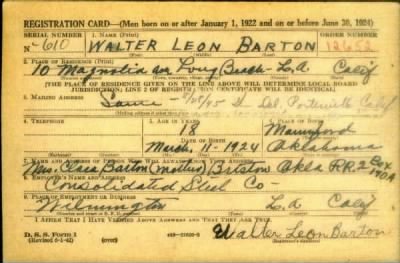 REGISTRATION CARD—(Men born on or after January 1, 1922 and on or before June 30, 1924)
SERIAL NUMBER 1. NAME (Print) ORDER NUMBER
N-610 WALTER LEON BARTON 12652
2. PLACE OF RESIDENCE (Print)
10 Magnolia av Long Beach - L.A. Calif
[THE PLACE OF RESIDENCE GIVEN ON THE LINE ABOVE WILL DETERMINE LOCAL BOARD
JURISDICTION; LINE 2 OF REGISTRATION CERTIFICATE WILL BE IDENTICAL]
3. MAILING ADDRESS
Same - Del. Porterville Calif
4. TELEPHONE 5. AGE IN YEARS 6. PLACE OF BIRTH
18 Mannford
DATE OF BIRTH
March, 11 - 1924 Oklahoma
7. NAME AND ADDRESS OF PERSON WHO WILL ALWAYS KNOW YOUR ADDRESS
Mrs. Barton (mother) Bristow Okla RR.2 Box 190A
8. EMPLOYER'S NAME AND ADDRESS
Consolidated Steel Co -
9. PLACE OF EMPLOYMENT OR BUSINESS
Wilmington L.A Calif
I AFFIRM THAT I HAVE VERIFIED ABOVE ANSWERS AND THAT THEY ARE TRUE.
D. S. S. Form 1
(Revised 6-1-42) (over)
Walter Leon Barton